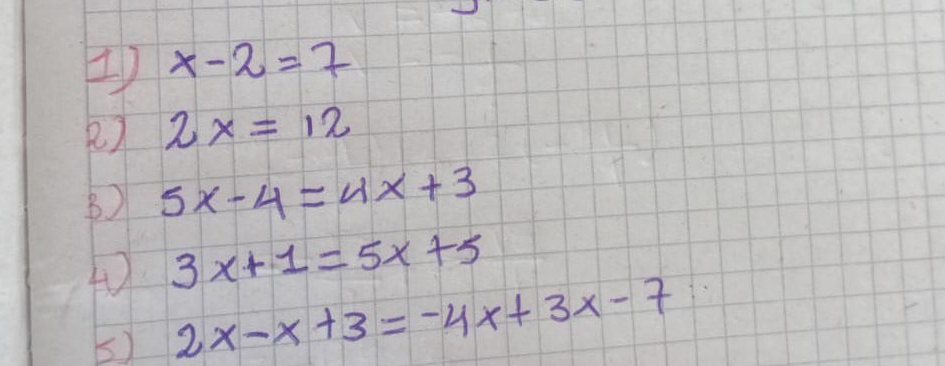 1) x-2=7
2) 2x=12
3) 5x-4=4x+3
4) 3x+1=5x+5
5) 2x-x+3=-4x+3x-7